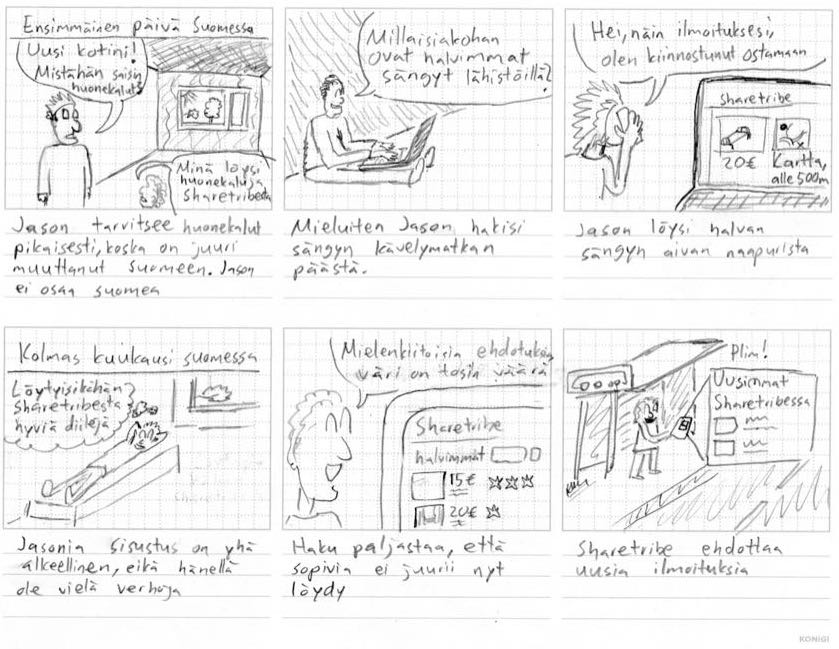 Ensimmäinen päivä Suomessa
Uusi kotini!
Mistähän saisin
huonekalut?
Minä löysin
huonekaluja
Sharetribesta
Jason tarvitsee huonekalut
pikaisesti, koska on juuri
muuttanut Suomeen. Jason
ei osaa suomea
Millaisiakohan
ovat halvimmat
sängyt lähistöillä?
Mieluiten Jason hakisi
sängyn kävelymatkan
päästä.
Hei, näin ilmoituksesi,
olen kiinnostunut ostamaan
sharetribe
20€
Kartta,
alle 500m
Jason löysi halvan
sängyn aivan naapurista
Kolmas kuukausi suomessa
Löytyisiköhän
sharetribesta
hyviä diilejä
Jasonin sisustus on yhä
alkeellinen, eikä hänellä
ole vielä verhoja
Mielenkiitoisia ehdotuksia
väri on tosia väärä
Sharetribe
halvimmat
15€
20€
Haku paljastaa, että
sopivia ei juurii nyt
löydy
Plim!
Uusimmat
Sharetribessa
Sharetribe ehdottaa
uusia ilmoituksia
KONIGI